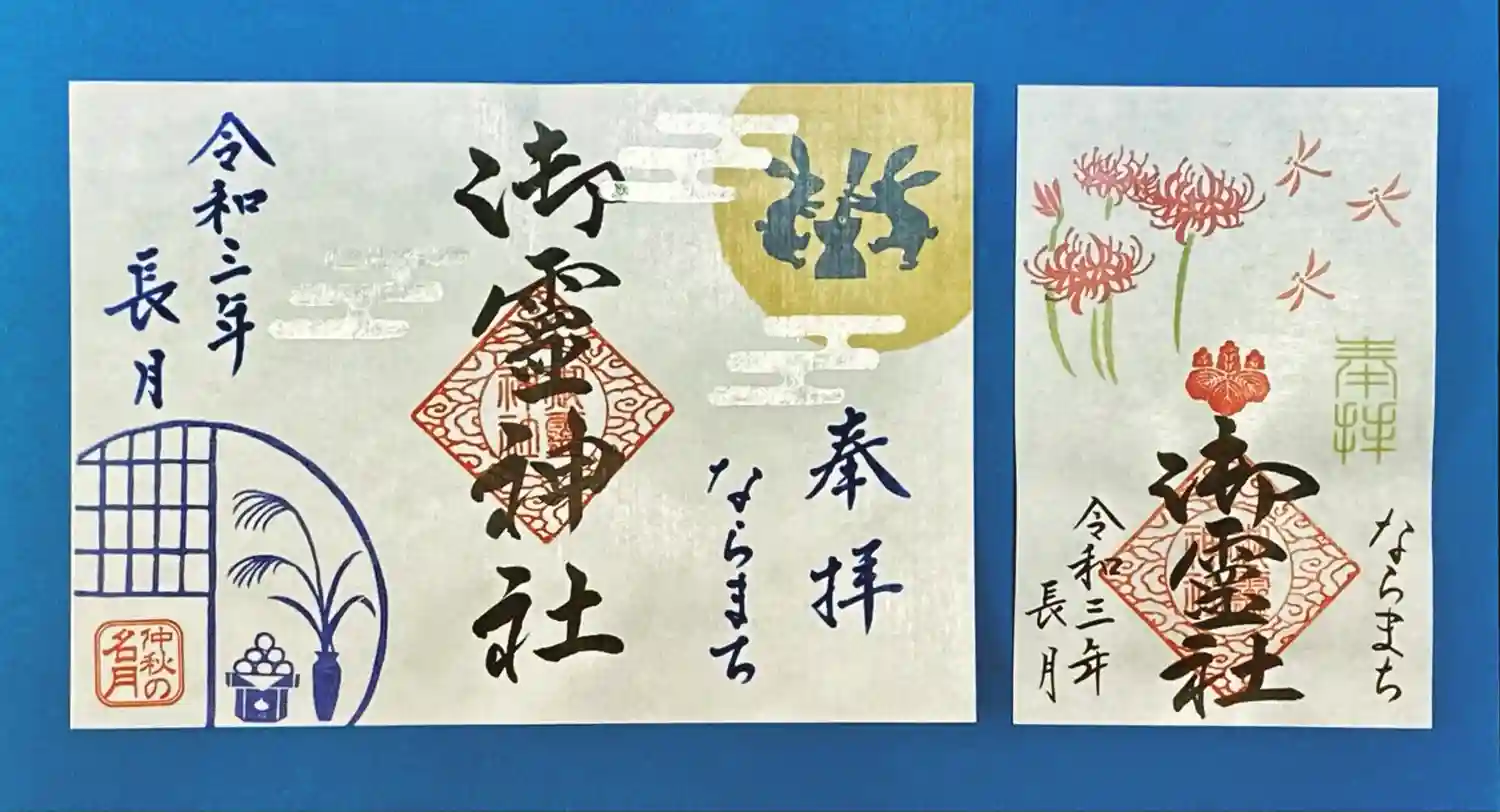 奉拝
ならまち
御霊神社
令和三年
長月
仲秋の
名月
奉拝
ならまち
御霊社
令和三年
長月